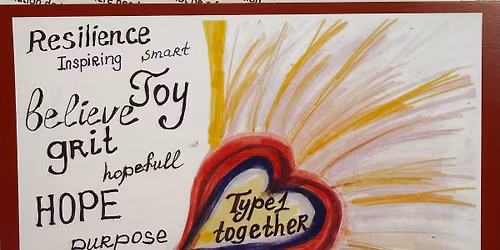 Resilience
Inspiring smart
believe Joy
grit
hopefull
HOPE
purpose
Type1
together